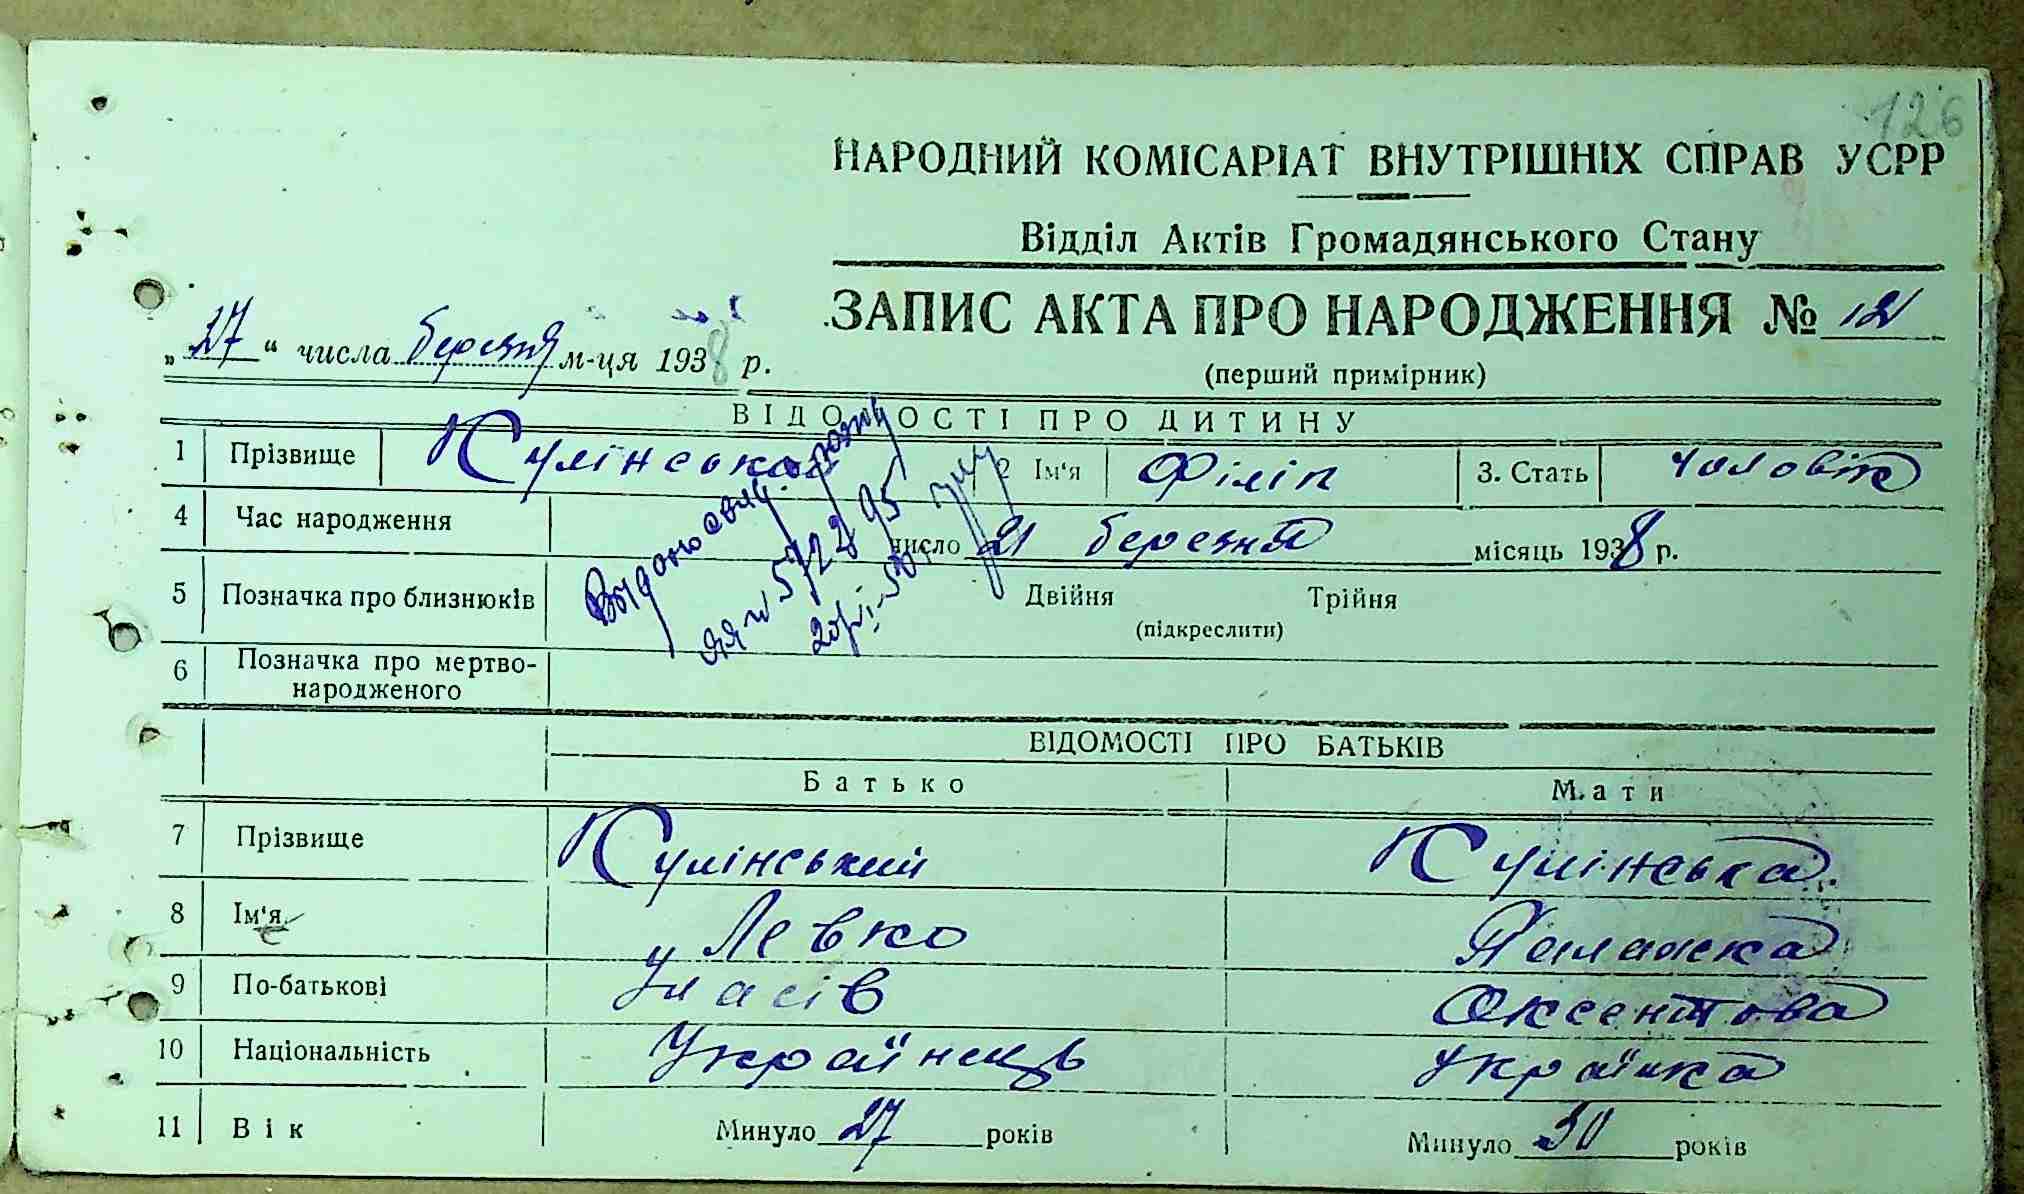 126
НАРОДНИЙ КОМІСАРІАТ ВНУТРІШНІХ СПРАВ УСРР
Відділ Актів Громадянського Стану
ЗАПИС АКТА ПРО НАРОДЖЕННЯ №
„27“ числа березня м-ця 1938 р.
(перший примірник)
ВІДОМОСТІ ПРО ДИТИНУ
1 Прізвище Кулінська 2 Ім'я Філіп 3. Стать чоловік
4 Час народження число 21 березня місяць 1938 р.
5 Позначка про близнюків Двійня Трійня
(підкреслити)
6 Позначка про мертво-
народженого
ВІДОМОСТІ ПРО БАТЬКІВ
Батько Мати
7 Прізвище Кулінський Кулінська
8 Ім'я Левко Палажка
9 По-батькові Уласів Оксентова
10 Національність Українець Українка
11 Вік Минуло 27 років Минуло 30 років